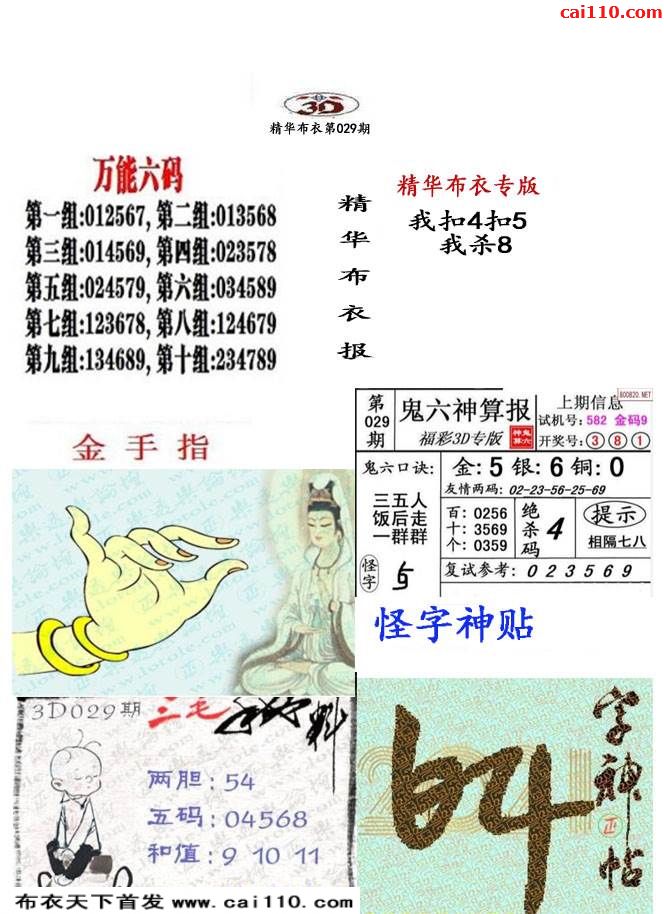 cai110.com
3D
精华布衣第029期
万能六码
第一组:012567, 第二组:013568
第三组:014569, 第四组:023578
第五组:024579, 第六组:034589
第七组:123678, 第八组:124679
第九组:134689, 第十组:234789
精华布衣报
精华布衣专版
我扣4扣5
我杀8
800820.NET
第029期
鬼六神算报
福彩3D专版
上期信息
试机号: 582 金码9
开奖号: 3 8 1
鬼六口诀:
三五人
饭后走
一群群
怪字
金: 5 银: 6 铜: 0
友情两码: 02-23-56-25-69
百: 0256
十: 3569
个: 0359
绝杀码 4
提示
相隔七八
复试参考: 0 2 3 5 6 9
金手指
怪字神贴
3D029期
三毛
料
两胆: 54
五码: 04568
和值: 9 10 11
字神帖
正
布衣天下首发 www.cai110.com